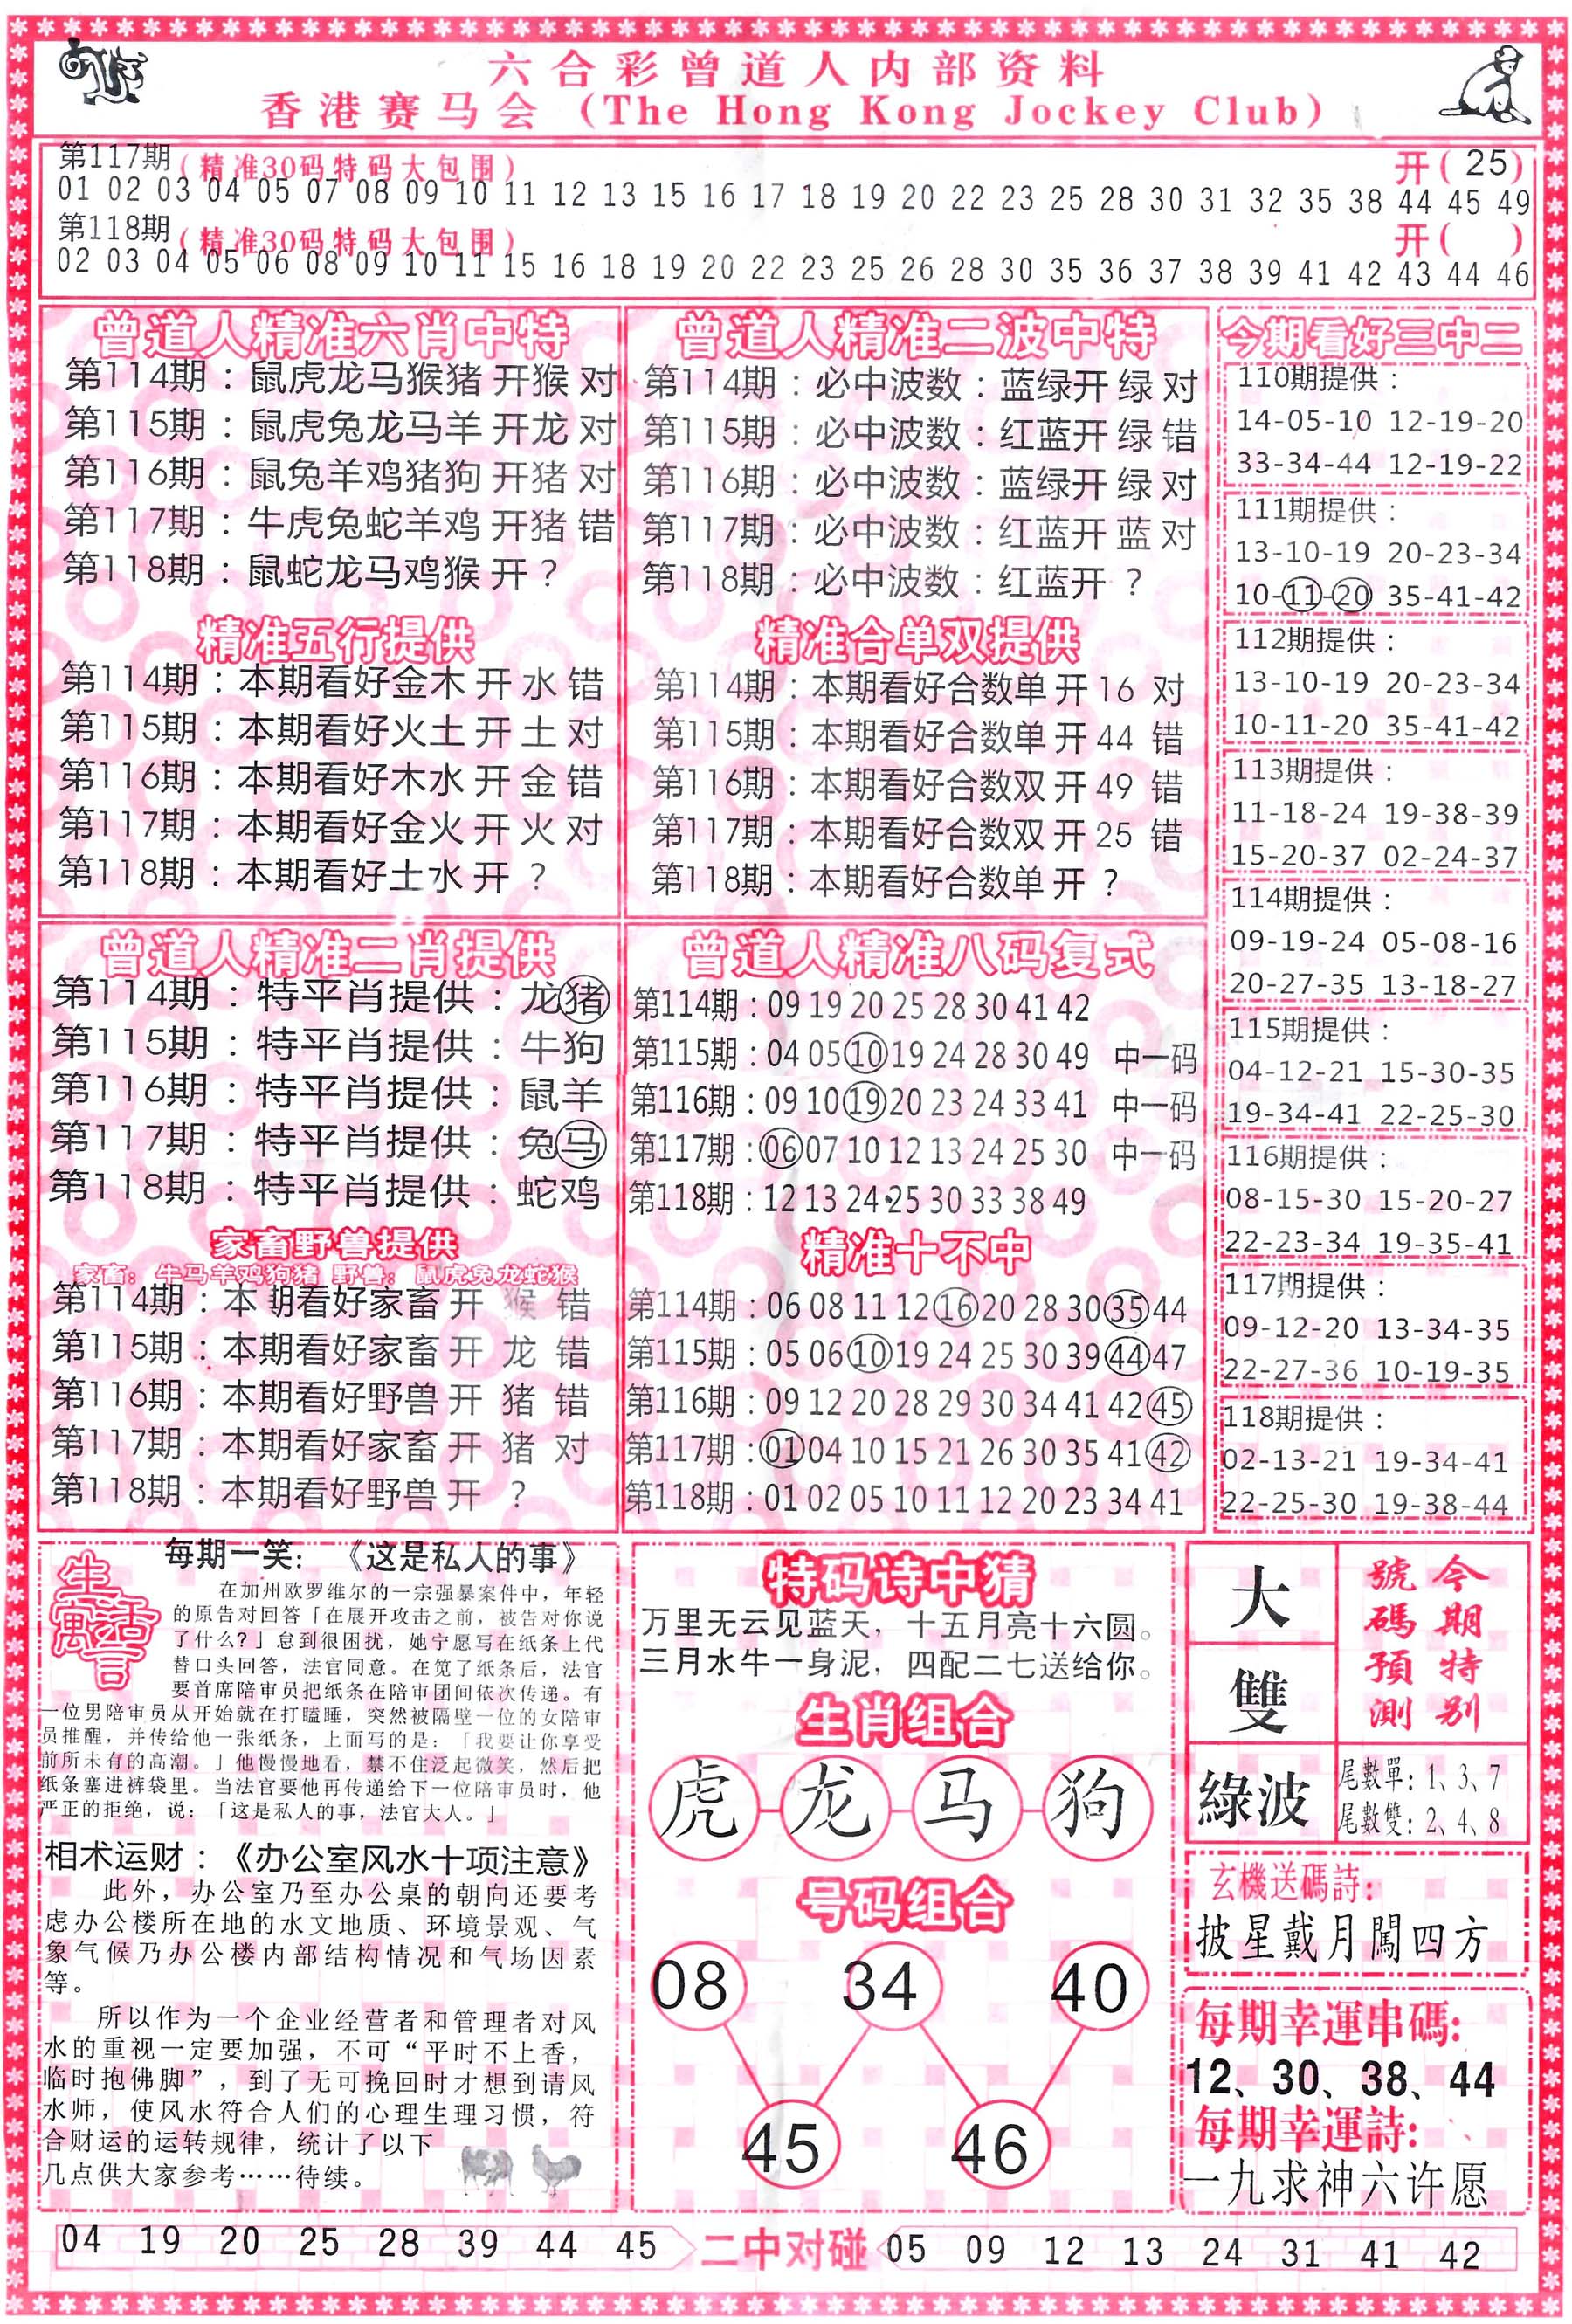 六合彩曾道人内部资料
香港赛马会（The Hong Kong Jockey Club）
第117期(精准30码特码大包围) 开( 25)
01 02 03 04 05 07 08 09 10 11 12 13 15 16 17 18 19 20 22 23 25 28 30 31 32 35 38 44 45 49
第118期(精准30码特码大包围) 开( )
02 03 04 05 06 08 09 10 11 15 16 18 19 20 22 23 25 26 28 30 35 36 37 38 39 41 42 43 44 46
曾道人精准六肖中特
第114期：鼠虎龙马猴猪 开猴 对
第115期：鼠虎兔龙马羊 开龙 对
第116期：鼠兔羊鸡猪狗 开猪 对
第117期：牛虎兔蛇羊鸡 开猪 错
第118期：鼠蛇龙马鸡猴 开？
精准五行提供
第114期：本期看好金木 开 水 错
第115期：本期看好火土 开 土 对
第116期：本期看好木水 开 金 错
第117期：本期看好金火 开 火 对
第118期：本期看好土水 开 ？
曾道人精准二波中特
第114期：必中波数：蓝绿开 绿 对
第115期：必中波数：红蓝开 绿 错
第116期：必中波数：蓝绿开 绿 对
第117期：必中波数：红蓝开 蓝 对
第118期：必中波数：红蓝开 ？
精准合单双提供
第114期：本期看好合数单 开 16 对
第115期：本期看好合数单 开 44 错
第116期：本期看好合数双 开 49 错
第117期：本期看好合数双 开 25 错
第118期：本期看好合数单 开 ？
今期看好三中二
110期提供：
14-05-10 12-19-20
33-34-44 12-19-22
111期提供：
13-10-19 20-23-34
10-11-20 35-41-42
112期提供：
13-10-19 20-23-34
10-11-20 35-41-42
113期提供：
11-18-24 19-38-39
15-20-37 02-24-37
114期提供：
09-19-24 05-08-16
20-27-35 13-18-27
115期提供：
04-12-21 15-30-35
19-34-41 22-25-30
116期提供：
08-15-30 15-20-27
22-23-34 19-35-41
117期提供：
09-12-20 13-34-35
22-27-36 10-19-35
118期提供：
02-13-21 19-34-41
22-25-30 19-38-44
曾道人精准二肖提供
第114期：特平肖提供：龙猪
第115期：特平肖提供：牛狗
第116期：特平肖提供：鼠羊
第117期：特平肖提供：兔马
第118期：特平肖提供：蛇鸡
家畜野兽提供
家畜：牛马羊鸡狗猪 野兽：鼠虎兔龙蛇猴
第114期：本期看好家畜 开 猴 错
第115期：本期看好家畜 开 龙 错
第116期：本期看好野兽 开 猪 错
第117期：本期看好家畜 开 猪 对
第118期：本期看好野兽 开 ？
曾道人精准八码复式
第114期：09 19 20 25 28 30 41 42
第115期：04 05 10 19 24 28 30 49 中一码
第116期：09 10 19 20 23 24 33 41 中一码
第117期：06 07 10 12 13 24 25 30 中一码
第118期：12 13 24 25 30 33 38 49
精准十不中
第114期：06 08 11 12 16 20 28 30 35 44
第115期：05 06 10 19 24 25 30 39 44 47
第116期：09 12 20 28 29 30 34 41 42 45
第117期：01 04 10 15 21 26 30 35 41 42
第118期：01 02 05 10 11 12 20 23 34 41
生活寓言
每期一笑：《这是私人的事》
在加州欧罗维尔的一宗强暴案件中，年轻
的原告对回答「在展开攻击之前，被告对你说
了什么?」怠到很困扰，她宁愿写在纸条上代
替口头回答，法官同意。在览了纸条后，法官
要首席陪审员把纸条在陪审团间依次传递。有
一位男陪审员从开始就在打瞌睡，突然被隔壁一位的女陪审
员推醒，并传给他一张纸条，上面写的是：「我要让你享受
前所未有的高潮。」他慢慢地看，禁不住泛起微笑，然后把
纸条塞进裤袋里。当法官要他再传递给下一位陪审员时，他
严正的拒绝，说：「这是私人的事，法官大人。」
相术运财：《办公室风水十项注意》
此外，办公室乃至办公桌的朝向还要考
虑办公楼所在地的水文地质、环境景观、气
象气候乃办公楼内部结构情况和气场因素
等。
所以作为一个企业经营者和管理者对风
水的重视一定要加强，不可“平时不上香，
临时抱佛脚”，到了无可挽回时才想到请风
水师，使风水符合人们的心理生理习惯，符
合财运的运转规律，统计了以下
几点供大家参考……待续。
特码诗中猜
万里无云见蓝天，十五月亮十六圆。
三月水牛一身泥，四配二七送给你。
生肖组合
虎 龙 马 狗
号码组合
08 34 40
45 46
大
雙
綠波
今期特别
號碼預測
尾數單：1、3、7
尾數雙：2、4、8
玄機送碼詩：
披星戴月闖四方
每期幸運串碼：
12、30、38、44
每期幸運詩：
一九求神六许愿
04 19 20 25 28 39 44 45 二中对碰 05 09 12 13 24 31 41 42